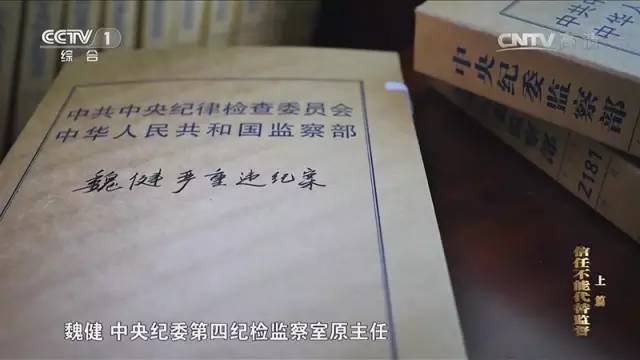 CCTV 1
综合
CNTV 高清
中共中央纪律检查委员会
中华人民共和国监察部
魏健严重违纪案
中央纪委监察部
2181
上篇
信任不能代替监督
魏健 中央纪委第四纪检监察室原主任